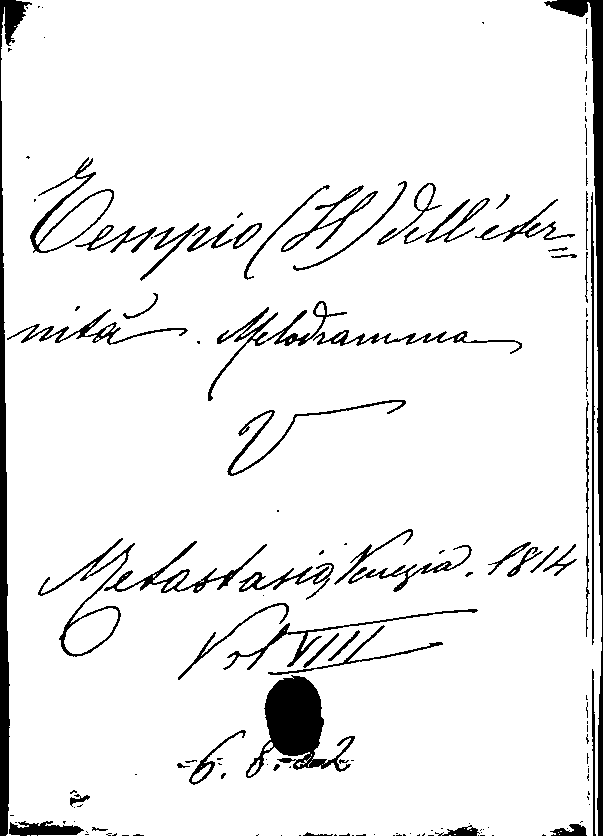 Tempio (Il) dell'éter=
nità. Melodramma
V
Metastasio, Venezia. 1814
Vol VIII
6. 8.